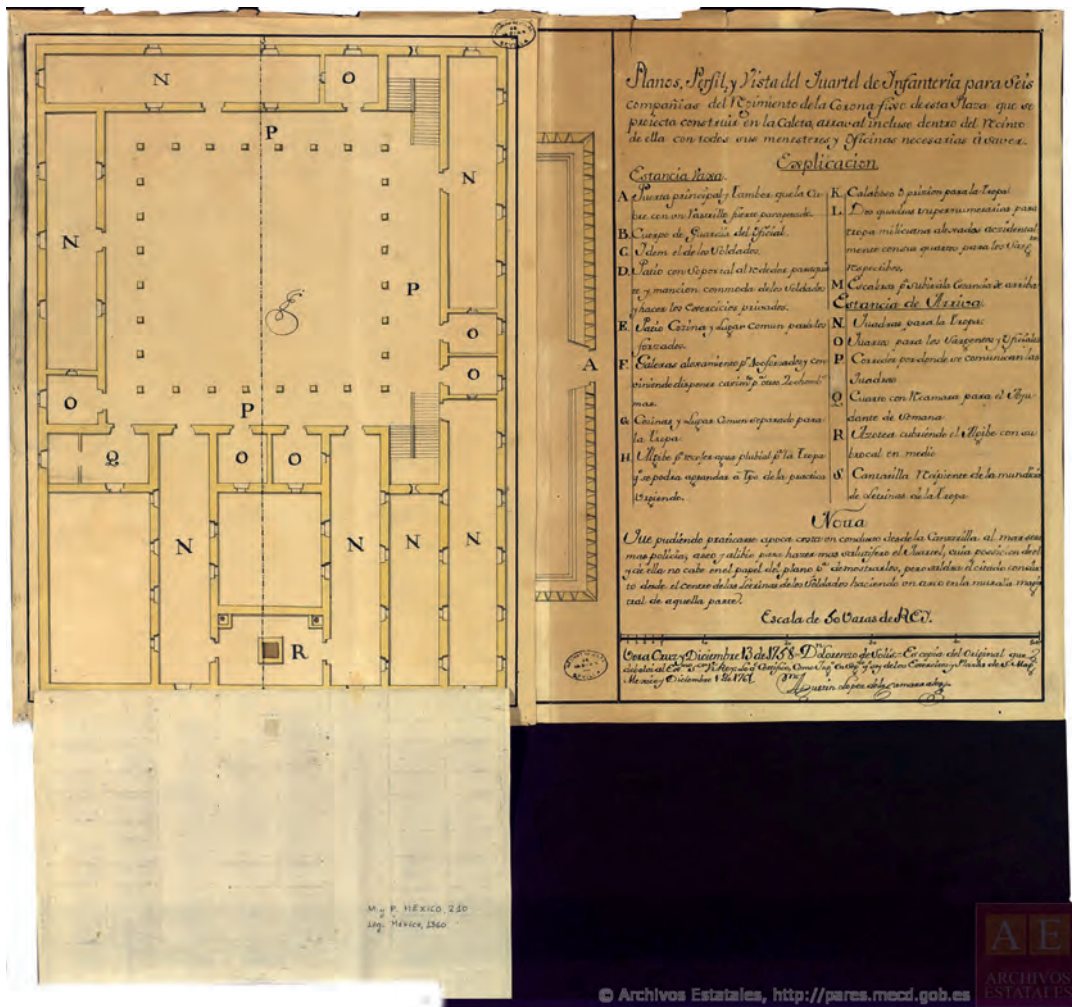 Planos, Perfil, y Vista del Quartel de Infanteria para Seis
compañias del Regimiento de la Corona fixo de esta Plaza que se
proiecta construir en la Caleta, arraval incluso dentro del Recinto
de ella con todos sus menesteres y Oficinas necesarias à saver.
Explicacion
Estancia Vaxa.
A Puerta principal y Tambor que la Cu-
bre con un Rastrillo fuerte para
B. Cuerpo de Guardia del Oficial.
C. Idem el de los Soldados.
D. Patio con Soportal al rededor para
y mancion commoda de los Soldados
y hacer los Exercicios privados.
E. Patio Cozina y Lugar Comun para los
forzados.
F. Galeras aloxamiento
mas.
G Cozinas y Lugar Comun separado para
la Tropa
H. Algibe pª recoger agua plubial pª la Tropa
qº se podra agrandar à tpo. de la practica
K. Calabozo ô pricion para la Tropa
L. Dos quadras supernumerarias para
tropa miliciana aloxadas accidental
mente con sus quartos para los Sargtos
respectibos.
M Escaleras pª subir à la Estancia de arriba
Estancia de Arriva
N. Quadras para la Tropa
O Quartos para los Sargentos y Oficiales
P Corredor por donde se comunican las
Quadras
Q Cuarto con Recamara para el Ayu-
dante de Semana
R Azotea cubriendo el Algibe con su
brocal en medio
S. Cantarilla Recipiente de la mundicia
de Letrinas de la Tropa
Nota
Que pudiendo praticarse à poca costa un conducto desde la Cantarilla al mar sera
mas policia, aseo y alibio para hazer mas salutifero el Quartel, cuia posicion de el
y de ella no cabe en el papel del plano pª demostrarlos, pero saldra el citado conduc-
to desde el centro de las Letrinas de los Soldados haciendo un arco en la muralla magis-
tral de aquella parte.
Escala de 50 Varas de
Vera Cruz y Diciembre 13 de 1758 Dn. Lorenzo de Solis = Es copia del Original que
Mexico y Diciembre 1 de 1761
Agustin Lopez de la Camara Alta
N
O
P
N
N
P
O
O
A
O
P
Q
O
O
N
N
N
N
R
M. y P. MÉXICO, 210
Leg. México, 1360
© Archivos Estatales, http://pares.mecd.gob.es
AE
ARCHIVOS
ESTATALES